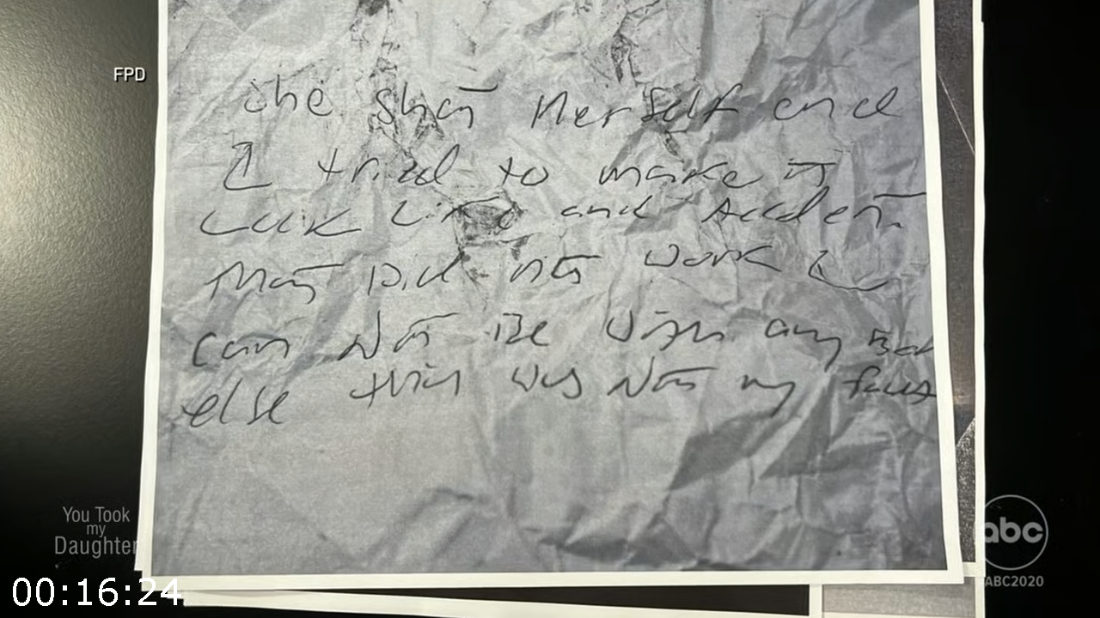 FPD
she shot Herself and
I tried to make it
Look Like and Acciden.
That Did not work I
can Not Be With any
else this was Not my
You Took
my
Daughter
abc
ABC2020
00:16:24